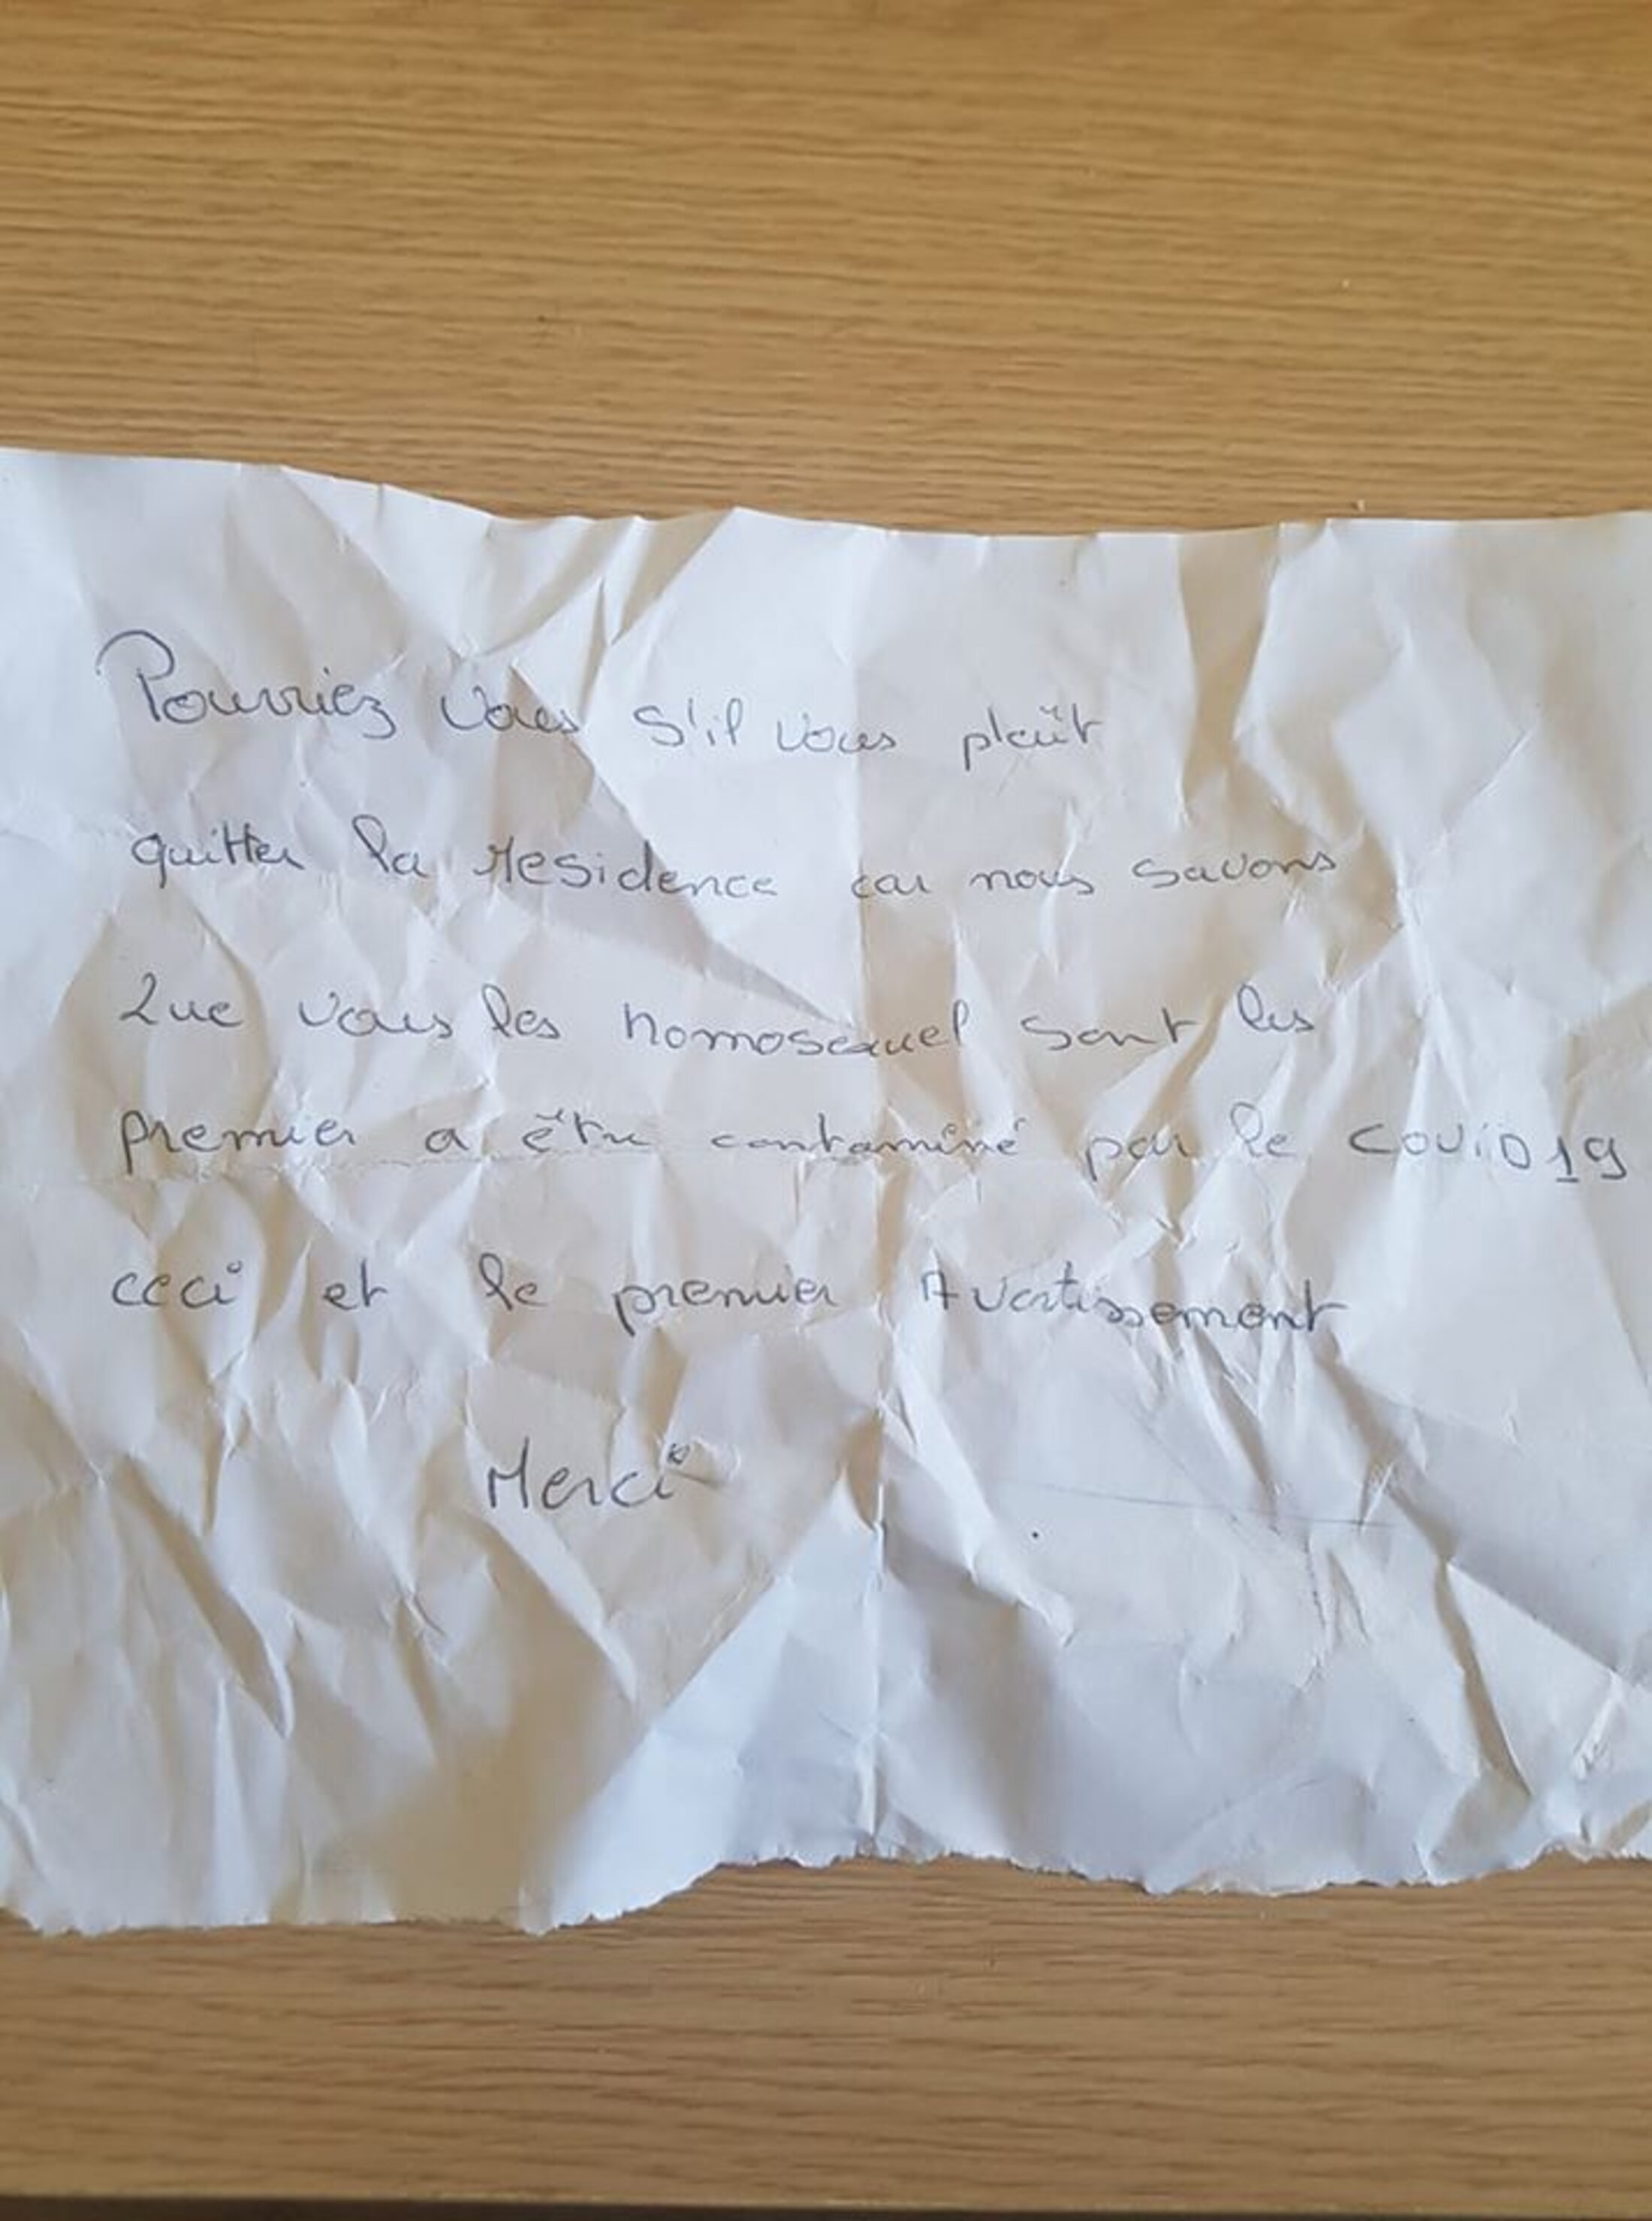 Pourriez vous s'il vous plaît
quitter la residence car nous savons
Que vous les homosexuel sont les
premier a être contaminé par le COVID19
ceci et le premier Avertissement
Merci